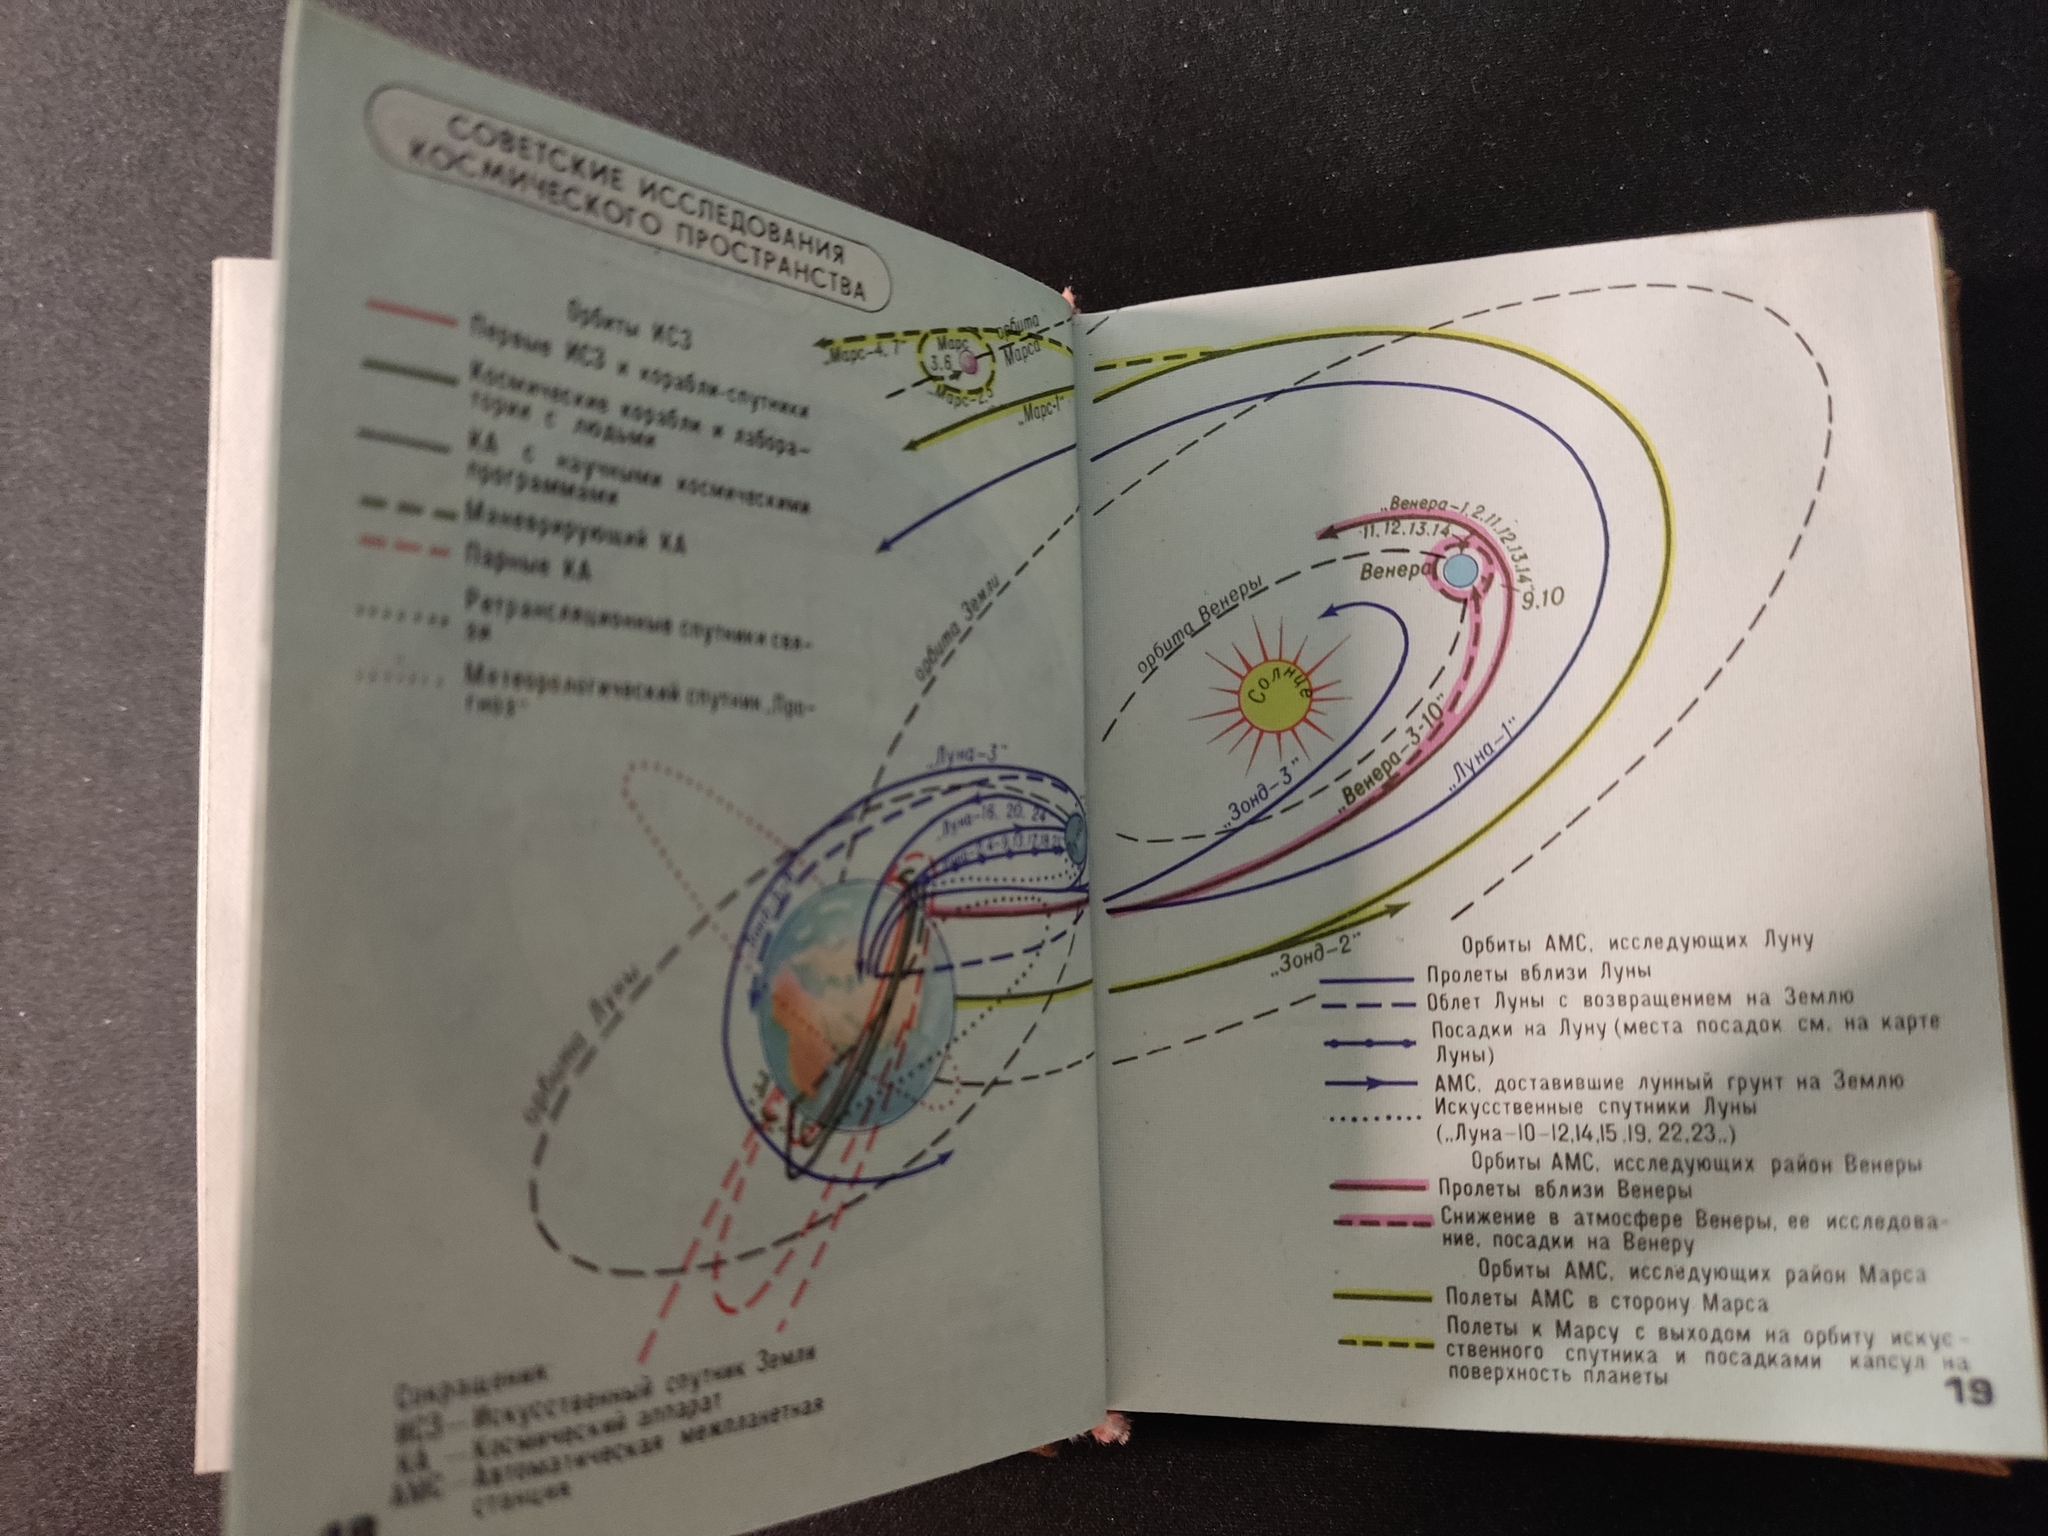 СОВЕТСКИЕ ИССЛЕДОВАНИЯ
КОСМИЧЕСКОГО ПРОСТРАНСТВА
Орбиты ИСЗ
Первые ИСЗ и корабли-спутники
Космические корабли и лабора-
тории с людьми
КА с научными космическими
программами
Маневрирующий КА
Парные КА
Ретрансляционные спутники свя-
зи
Метеорологический спутник „Про-
гноз“
„Марс-4, 7“
Марс
3,6
орбита
Марса
„Марс-2,5
„Марс-1“
орбита Земли
„Луна-3“
„Луна-16, 20, 24
орбита Луны
Сокращения:
ИСЗ — Искусственный спутник Земли
КА — Космический аппарат
АМС — Автоматическая межпланетная
станция
18
„Венера-1,2,11,12,13,14“
11,12,13,14
Венера
9,10
орбита Венеры
Солнце
„Зонд-3“
„Венера-3-10“
„Луна-1“
„Зонд-2“
Орбиты АМС, исследующих Луну
Пролеты вблизи Луны
Облет Луны с возвращением на Землю
Посадки на Луну (места посадок см. на карте
Луны)
АМС, доставившие лунный грунт на Землю
Искусственные спутники Луны
(„Луна-10-12,14,15,19, 22,23„)
Орбиты АМС, исследующих район Венеры
Пролеты вблизи Венеры
Снижение в атмосфере Венеры, ее исследова-
ние, посадки на Венеру
Орбиты АМС, исследующих район Марса
Полеты АМС в сторону Марса
Полеты к Марсу с выходом на орбиту искус-
ственного спутника и посадками капсул на
поверхность планеты
19